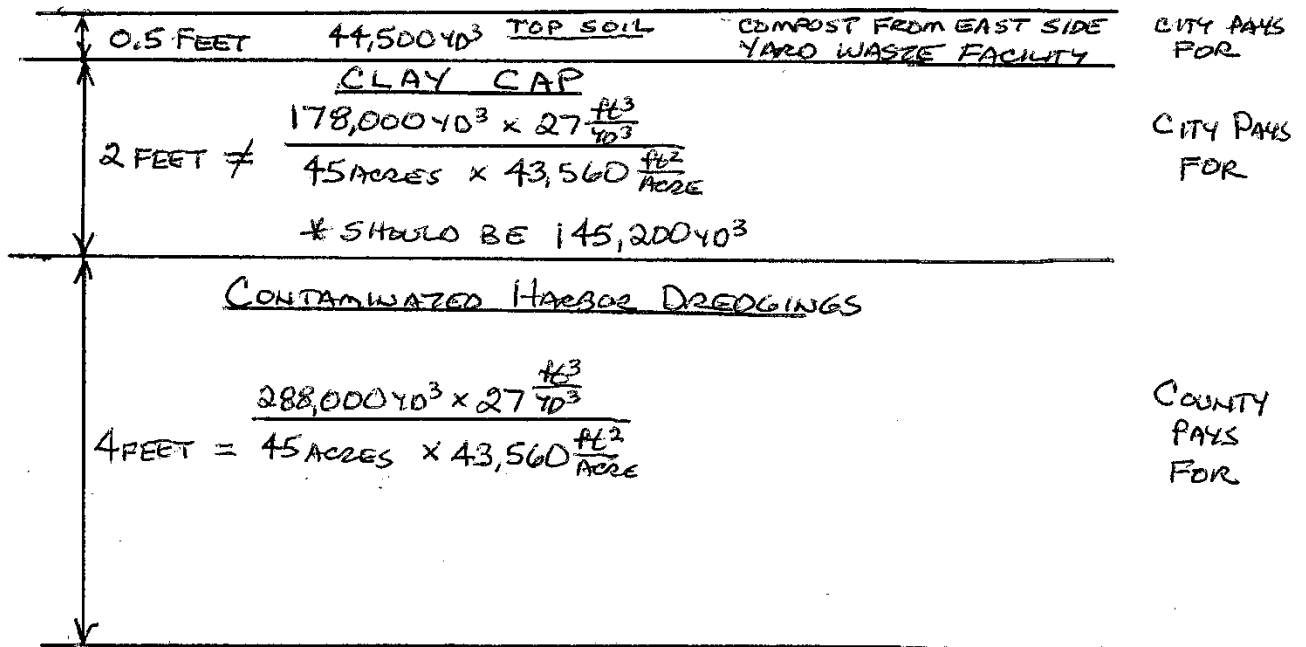 0.5 FEET 44,500 YD³ TOP SOIL COMPOST FROM EAST SIDE CITY PAYS
YARD WASTE FACILITY FOR
CLAY CAP
178,000 YD³ x 27 ft³/YD³
2 FEET ≠ 45 ACRES x 43,560 ft²/ACRE
CITY PAYS
FOR
* SHOULD BE 145,200 YD³
CONTAMINATED HARBOR DREDGINGS
288,000 YD³ x 27 ft³/YD³
4 FEET = 45 ACRES x 43,560 ft²/ACRE
COUNTY
PAYS
FOR